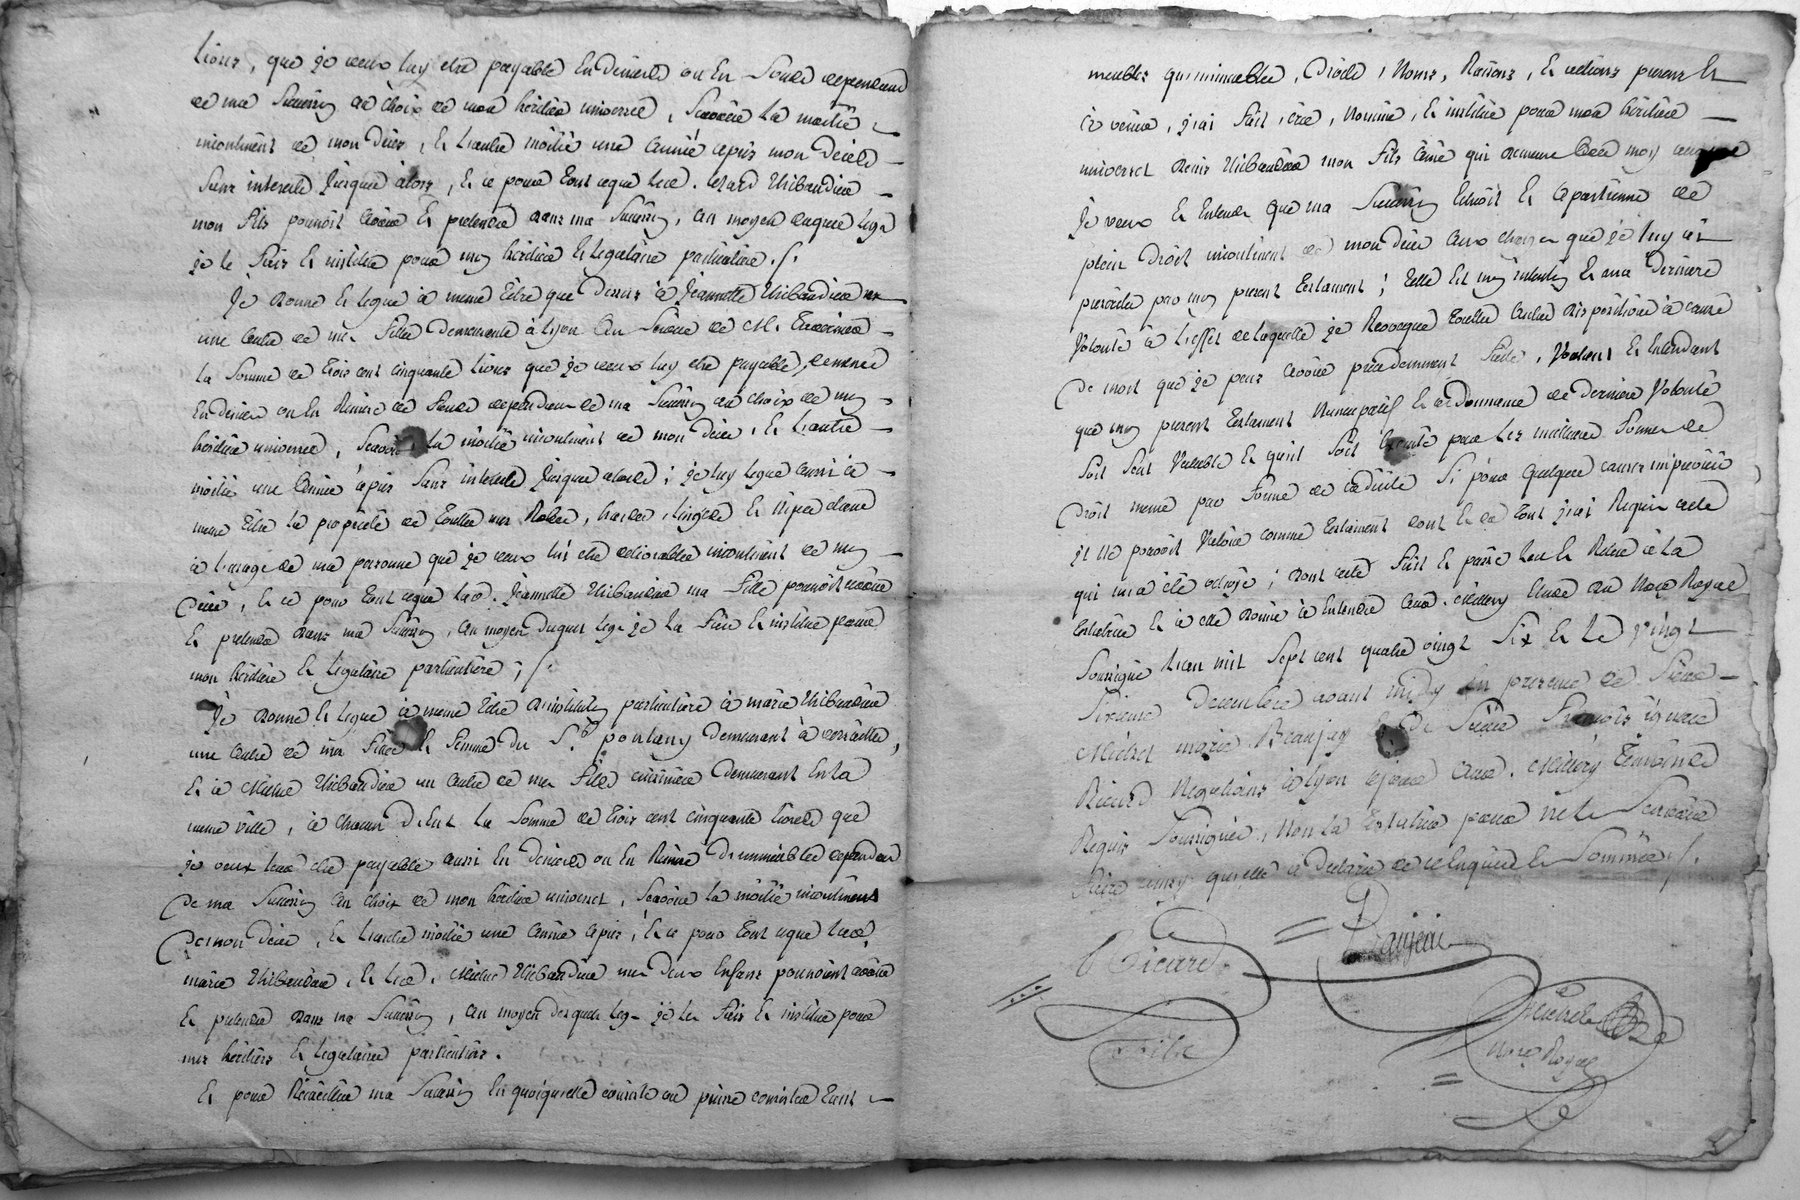 livres, que je veux luy etre payable en deniers ou en fonds dependant
de ma succession au choix de mon heritier universel, scavoir la moitié
incontinent de mon deces, et l'autre moitié une année apres mon deces
sans interets jusques alors, et ce pour tout ce que led. Thibaudier
mon fils pouvoit avoir et pretendre dans ma succession, au moyen duquel legs
je le fais et institue pour mon heritier et legataire particulier ./.
Je donne et legue à meme titre que dessus à Jeannette Thibaudier
une autre de mes filles demeurante à Lyon au service de M.
la somme de trois cent cinquante livres que je veux luy etre payable de meme
en deniers ou en nature de fonds dependans de ma succession au choix de mon
heritier universel, scavoir la moitié incontinent de mon deces, et l'autre
moitié une année apres sans interets jusques alors ; je luy legue aussi à
meme titre la propriété de toutes mes robes, hardes, linges et nipes
à l'usage de ma personne que je veux lui etre delivrables incontinent de mon
deces, et ce pour tout ce que lad. Jeannette Thibaudier ma fille pouvoit avoir
et pretendre dans ma succession, au moyen duquel legs je la fais et institue pour
mon heritiere et legataire particuliere ; ./.
Je donne et legue à meme titre d'institution particuliere à marie Thibaudier
une autre de mes filles et femme du Sr. demeurant à versailles,
et à Thibaudier un autre de mes fils demeurant en la
meme ville, à chacun d'eux la somme de trois cent cinquante livres que
je veux leur etre payable aussi en deniers ou en nature d'immeubles dependant
de ma succession au choix de mon heritier universel, scavoir la moitié incontinent
de mon deces, et l'autre moitié une année apres, et ce pour tout ce que lad.
marie Thibaudier, et led. Thibaudier mes deux enfans pouvoient avoir
et pretendre dans ma succession, au moyen desquels legs je les fais et institue pour
mes heritiers et legataires particuliers.
Et pour recueillir ma succession en quoiqu'elle consiste ou puisse consister tant
meubles qu'immeubles, droits, noms, raisons, et actions presens et
à venir, j'ai fait, créé, nommé, et institué pour mon heritier
universel Denis Thibaudier mon fils ainé qui demeure avec moy
je veux et entends que ma succession echoit et appartienne de
plein droit incontinent de mon deces aux charges que je luy ai
prescrites par mon present testament ; telle est mon intention et ma derniere
volonté à l'effet de laquelle je revocque toutes autres dispositions à cause
de mort que je peus avoir precedemment faites, voulant et entendant
que mon present testament nuncupatif et ordonnance de derniere volonté
soit seul valable et qu'il soit executé par les meilleures formes de
droit meme par forme de codicile si pour quelques causes imprevües
il ne pouvoit valoir comme testament dont et du tout j'ai requis acte
qui m'a été octroyé ; dont acte fait et passé leu et relu à la
testatrice et à elle donné à entendre aud. Millery etude du Nore Royal
soussigné l'an mil sept cent quatre vingt six et le vingt
sixieme decembre avant midy en presence de sieur
Michel marie Beaujay et de sieur François ignace
Picard negotians à Lyon ce jour aud. Millery temoins
requis soussignés, non la testatrice pour ne le scavoir
faire ainsy qu'elle a declaré de ce enquise et sommée ./.
Picard
Nore Royal